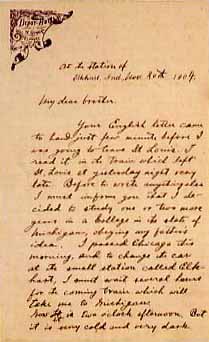 At the station of
Elkhart, Ind, Nov. 20th, 1904.
My dear brother.
Your English letter came
to hand just few minute before I
was going to leave St Louis. I
read it in the train which left
St Louis at yesterday night very
late. Before to write anything else
I must inform you that I de-
cided to study one or two more
years in a college in the state of
Michigan, obeying my father's
idea. I passed Chicago this
morning, and to change the car
at the small station called Elk-
hart, I must wait several hours
for the coming train which will
take me to Michigan.
Now it is two o'clock afternoon. But
it is very cold and very dark.